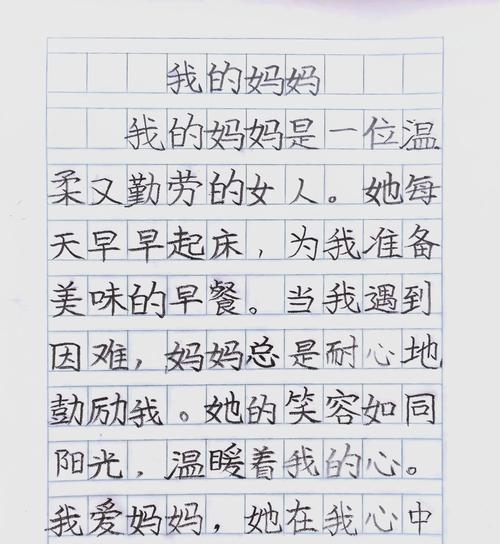 我的妈妈
我的妈妈是一位温
柔又勤劳的女人。她每
天早早起床，为我准备
美味的早餐。当我遇到
因难，妈妈总是耐心地
鼓励我。她的笑容如同
阳光，温暖着我的心。
我爱妈妈，她在我心中